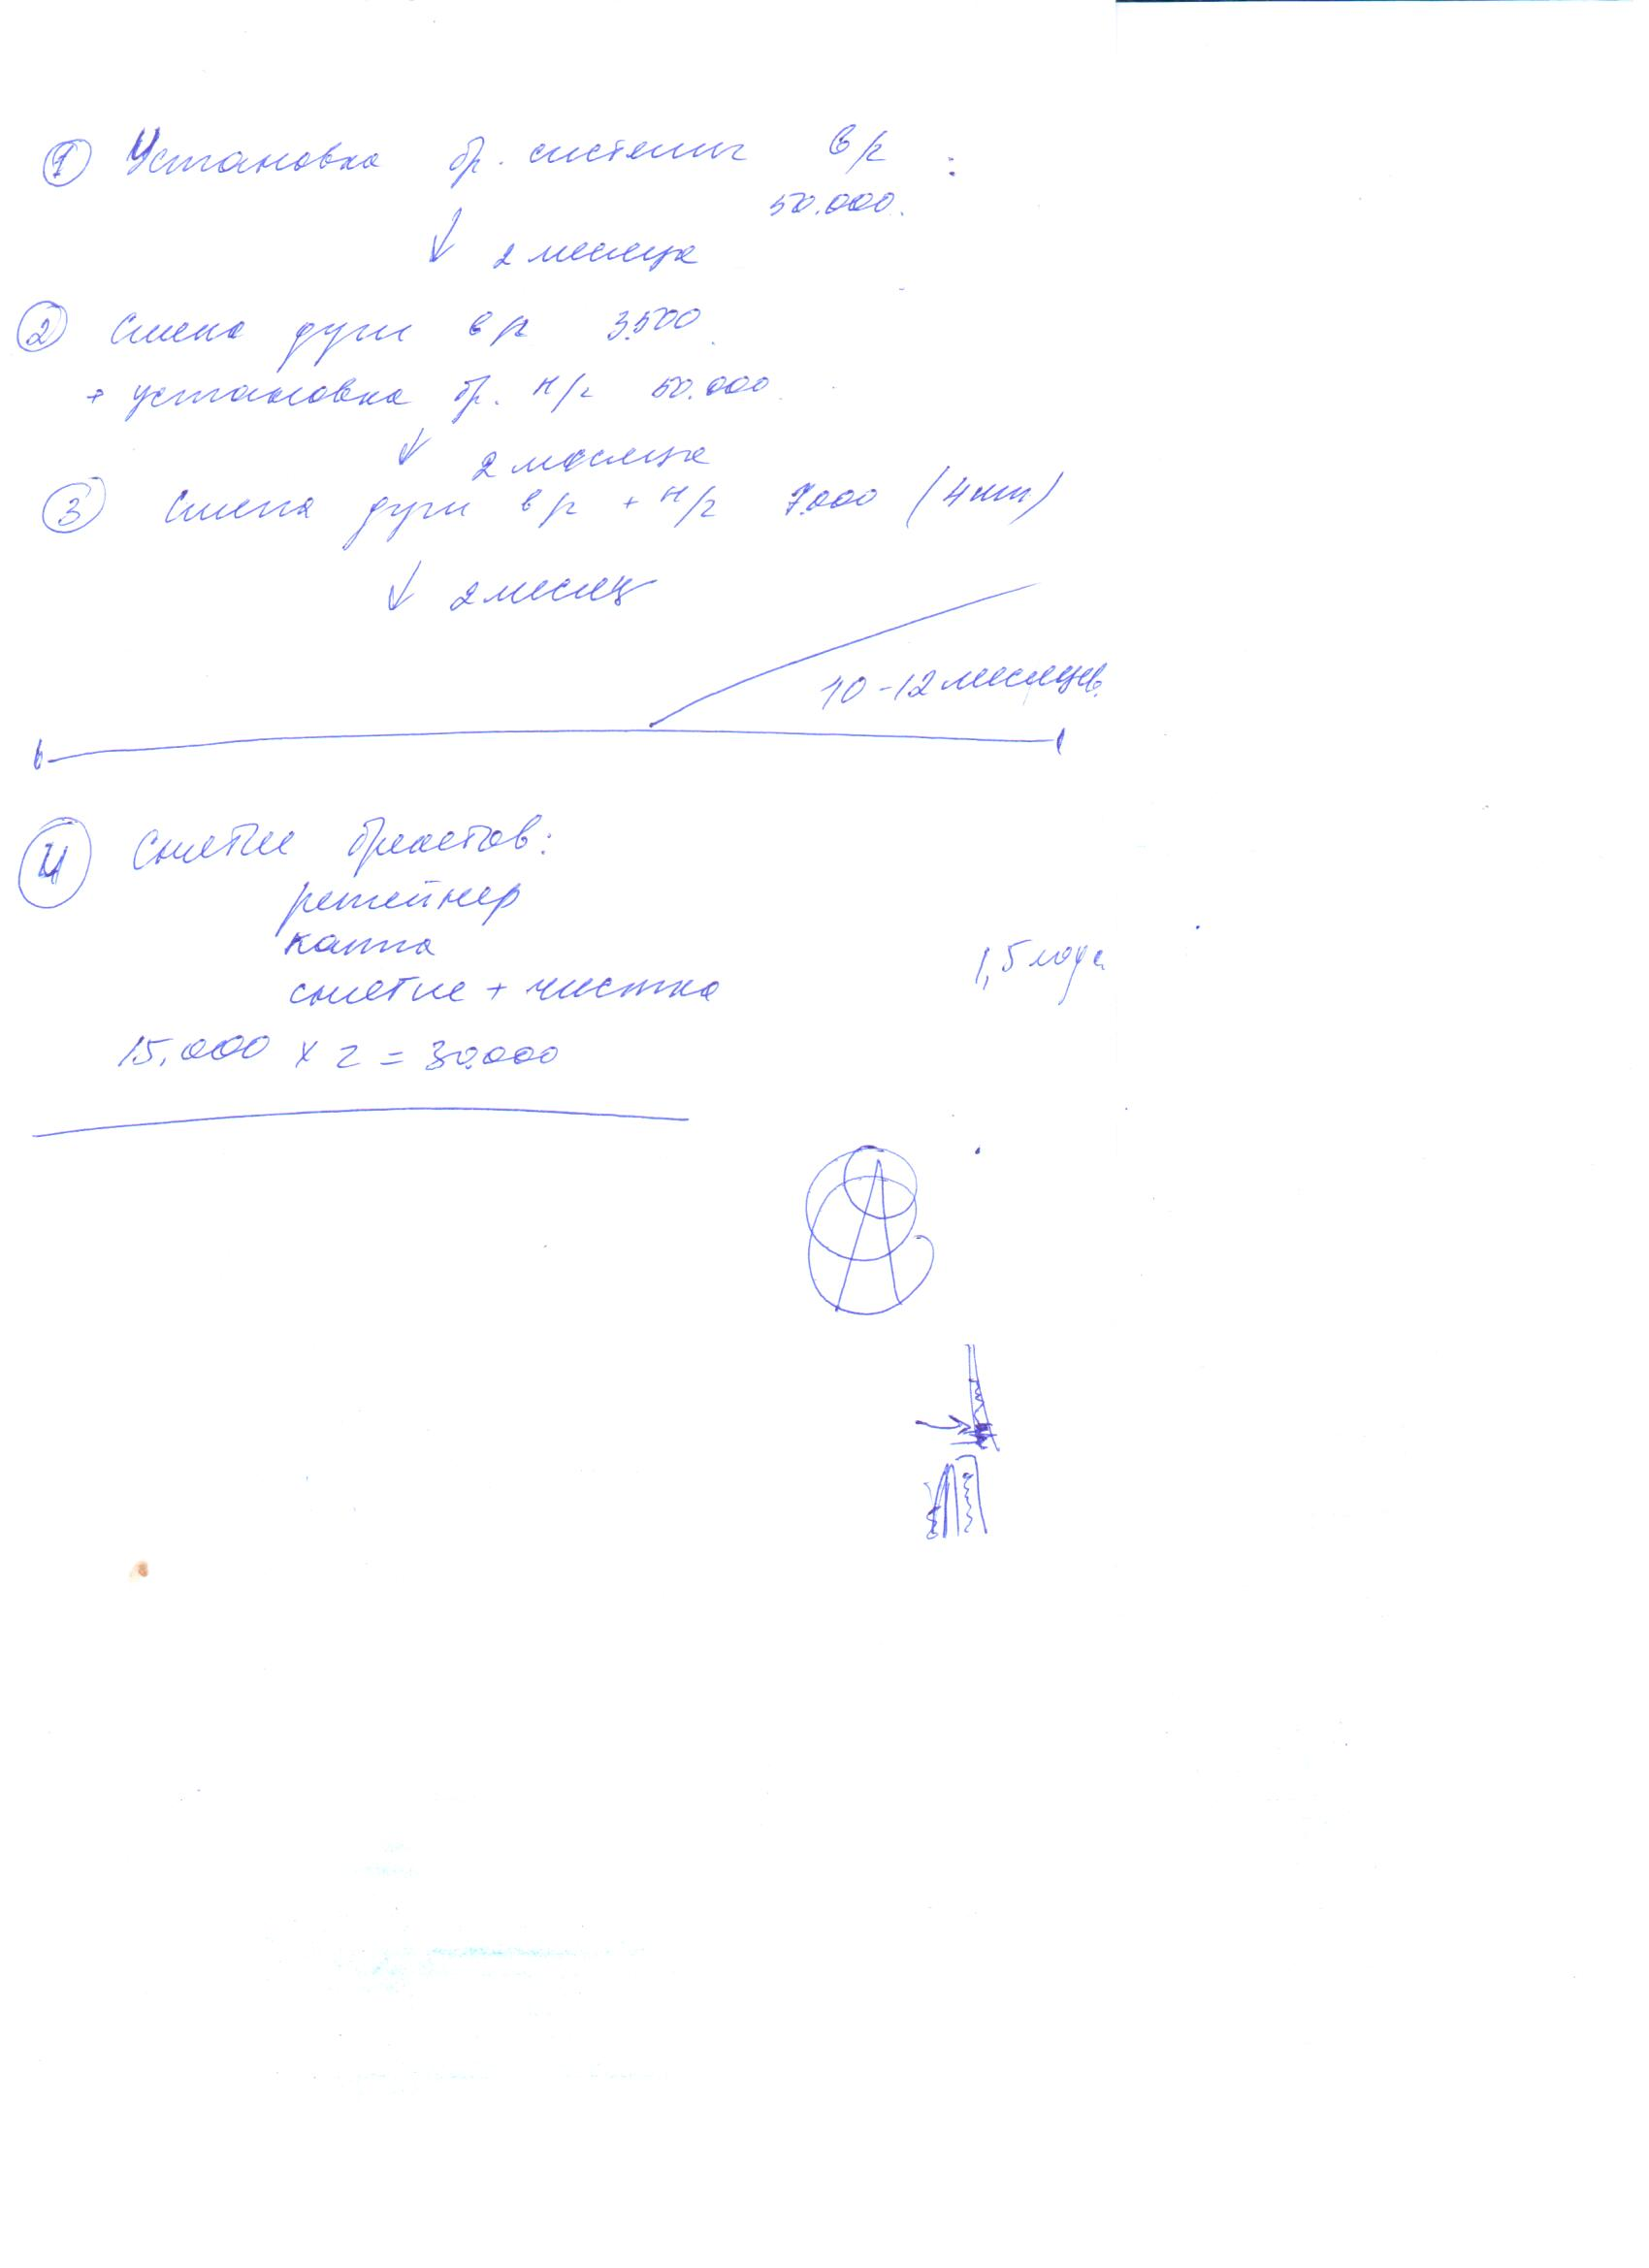 ① Установка бр. системы в/г :
50.000.
↓ 2 месяца
② Смена дуги в/г 3.500
+ установка бр. н/г 50.000
↓ 2 месяца
③ Смена дуги в/г + н/г 7.000 (4 шт)
↓ 2 месяц
10-12 месяцев
④ Снятие брекетов:
ретейнер
каппа
снятие + чистка
1,5 года
15.000 x 2 = 30.000